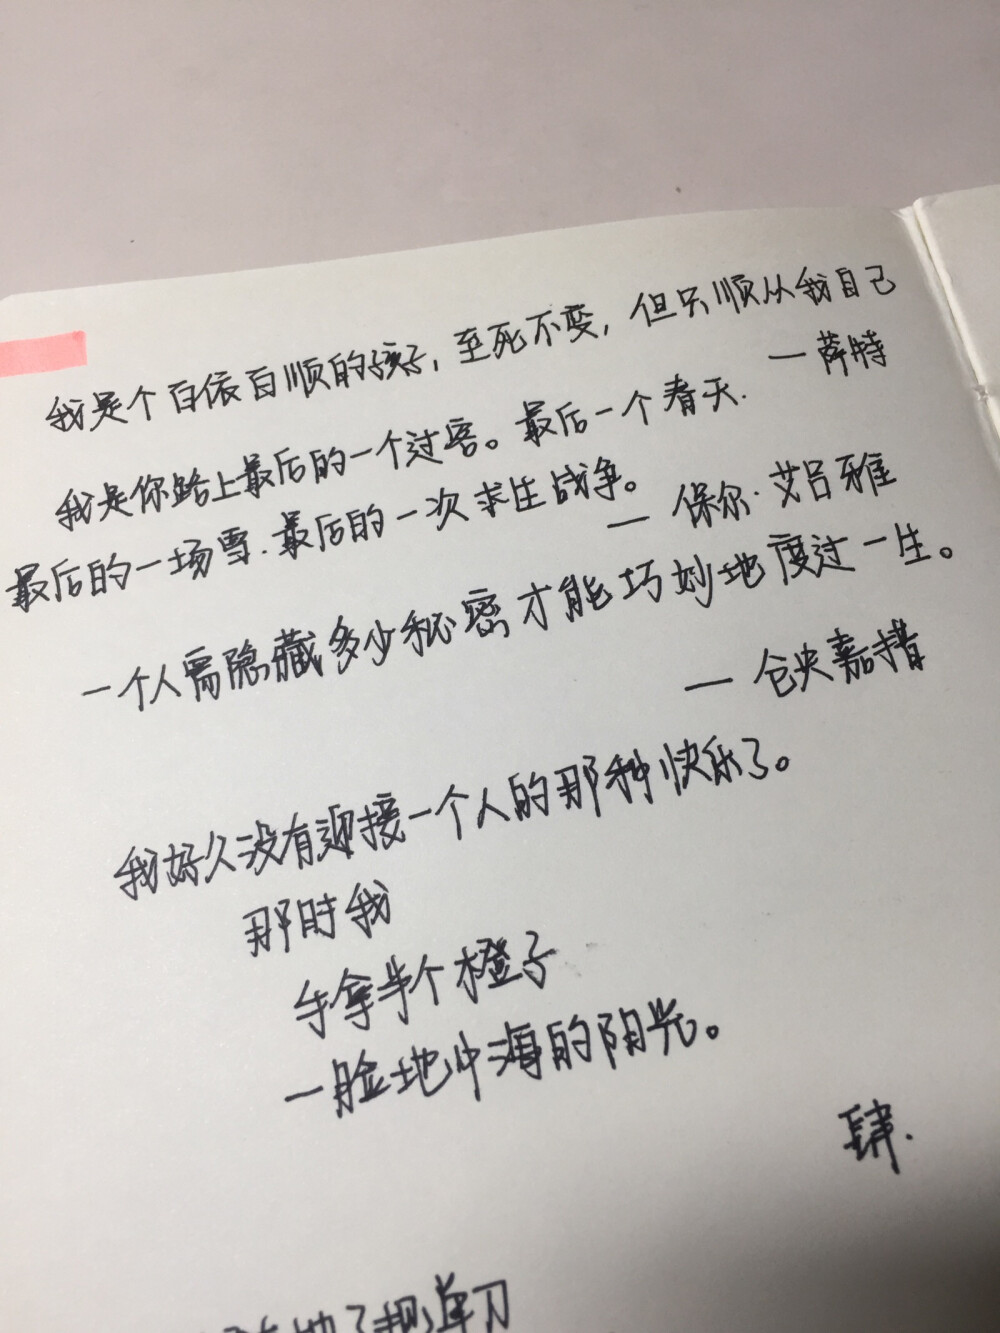 我是个百依百顺的孩子，至死不变，但只顺从我自己
— 萨特
我是你路上最后的一个过客。最后一个春天.
最后的一场雪.最后的一次求生战争。
— 保尔·艾吕雅
一个人需隐藏多少秘密才能巧妙地度过一生。
— 仓央嘉措
我好久没有迎接一个人的那种快乐了。
那时我
手拿半个橙子
一脸地中海的阳光。
肆.
了把单刀